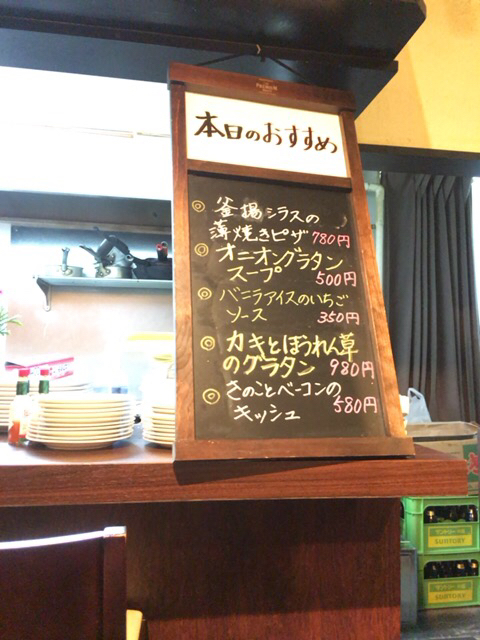 本日のおすすめ
◎ 釜揚シラスの
薄焼きピザ 780円
◎ オニオングラタン
スープ 500円
◎ バニラアイスのいちご
ソース 350円
◎ カキとほうれん草
のグラタン 980円
◎ きのことベーコンの
キッシュ 580円
SUNTORY
SUNTORY